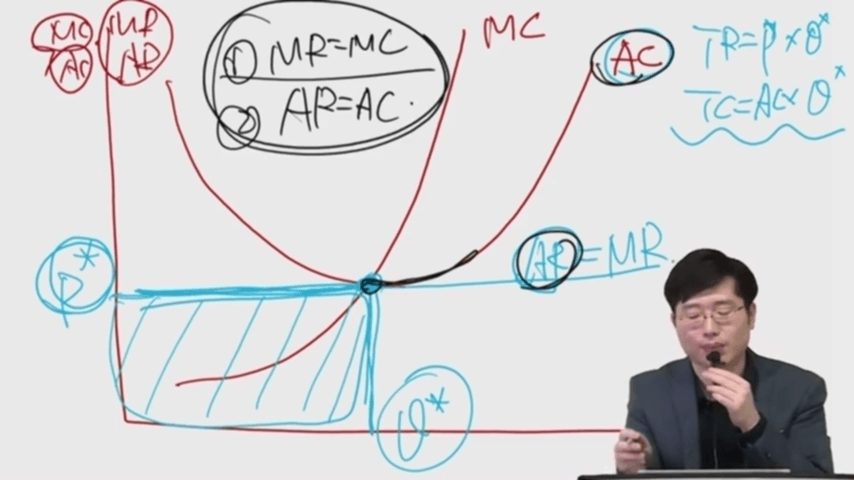 MC MR
AC AR
① MR=MC
② AR=AC.
MC
AC
TR=P×Q*
TC=AC×Q*
P*
AR=MR.
Q*